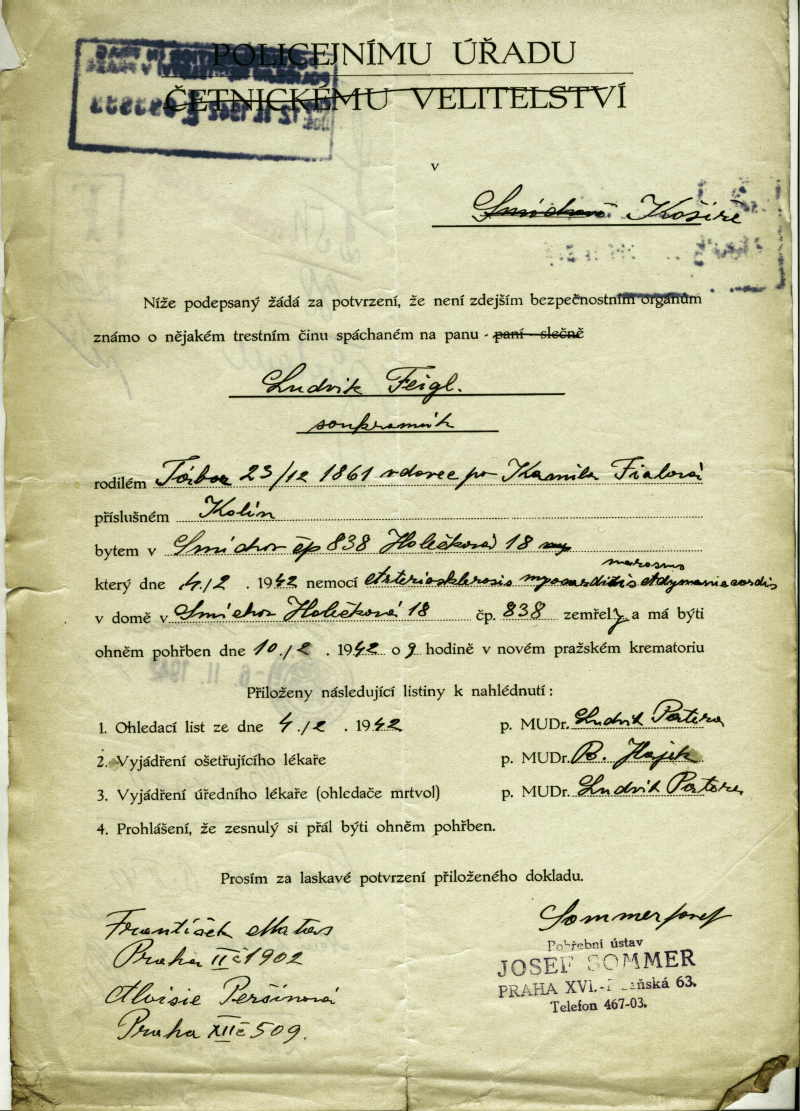 POLICEJNÍMU ÚŘADU
ČETNICKÉMU VELITELSTVÍ
v
Smíchově Košíře
Níže podepsaný žádá za potvrzení, že není zdejším bezpečnostním orgánům
známo o nějakém trestním činu spáchaném na panu - paní - slečně
Ludvik Feigl.
soukromník
rodilém Tábor 23/12 1861 vdovec po Kamila Fialová
příslušném Kolín
bytem v Smíchov čp 838 Holečková 18
marasmus
který dne 4./2. 1942 nemocí Arteriosklerosis myocarditis adynamia cordis
v domě v Smíchov Holečková 18 čp. 838 zemřel a má býti
ohněm pohřben dne 10./2. 1942 o 9 hodině v novém pražském krematoriu
Přiloženy následující listiny k nahlédnutí:
1. Ohledací list ze dne 4./2. 1942 p. MUDr. Ludvik
2. Vyjádření ošetřujícího lékaře p. MUDr. R. Hajek
3. Vyjádření úředního lékaře (ohledače mrtvol) p. MUDr. Ludvik
4. Prohlášení, že zesnulý si přál býti ohněm pohřben.
Prosím za laskavé potvrzení přiloženého dokladu.
František Matas
Praha II č 1902
Aloisie Peršínová
Praha XII č 509.
Sommer Josef
Pohřební ústav
JOSEF SOMMER
PRAHA XVI.- 63.
Telefon 467-03.